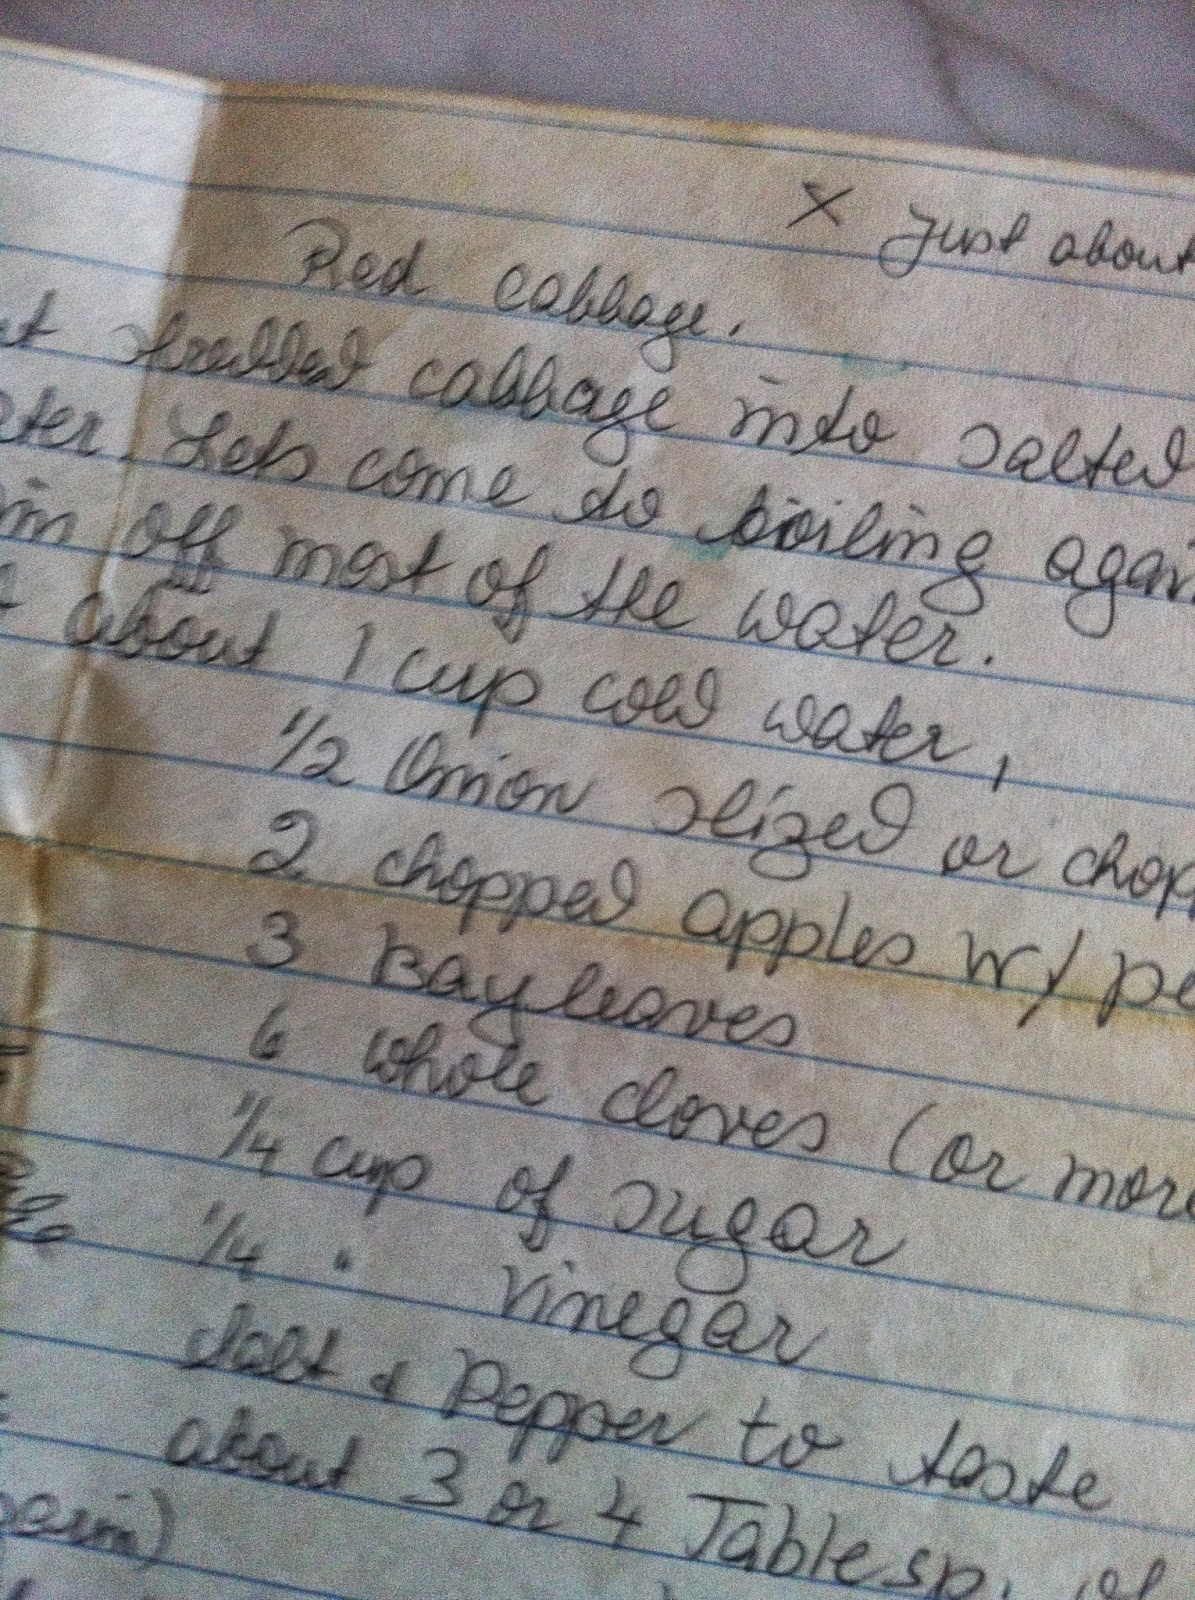 X Just about
Red cabbage.
cabbage into salted
Lets come to boiling again
off most of the water.
about 1 cup cold water,
1/2 Onion slized or chop
2 chopped apples w/ pe
3 Bayleaves
6 whole cloves (or more
1/4 cup of sugar
1/4 " vinegar
Salt & Pepper to taste
about 3 or 4 Tablesp. of